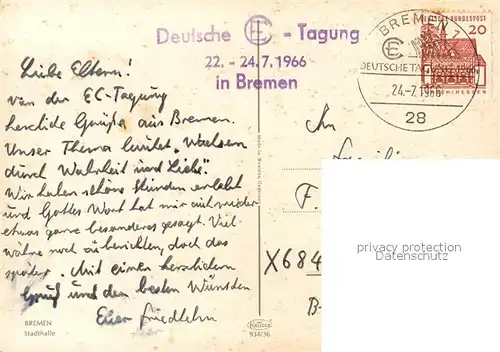 Deutsche EC - Tagung
22. - 24.7.1966
in Bremen
BREMEN 7
EC
DEUTSCHE TAGUNG
24.-7.1966
28
DEUTSCHE BUNDESPOST
20
Liebe Eltern!
Von der EC-Tagung
herzliche Grüße aus Bremen.
Unser Thema lautet: "Wachsen
durch Wahrheit und Liebe".
Wir haben schöne Stunden erlebt
und Gottes Wort hat mir auch wieder
etwas ganz besonderes gesagt. Viel
wäre noch zu berichten, doch das
später. Mit einem herzlichen
Gruß und den besten Wünschen
Euer Friedhelm
An
Familie
F.
X684
B-
privacy protection
Datenschutz
BREMEN
Stadthalle
934/36